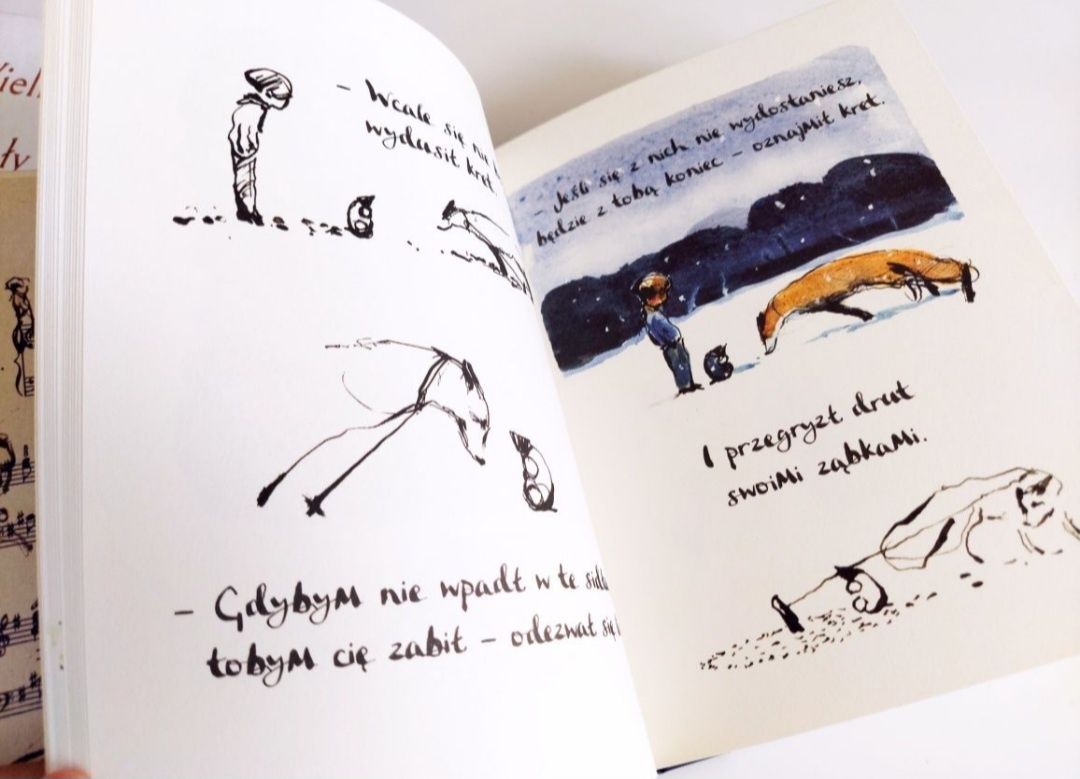 – Wcale się nie
wydusił kret.
– Gdybym nie wpadł w te sidła
tobym cię zabił – odezwał się
– Jeśli się z nich nie wydostaniesz,
będzie z tobą koniec – oznajmił kret.
I przegryzł drut
swoimi ząbkami.